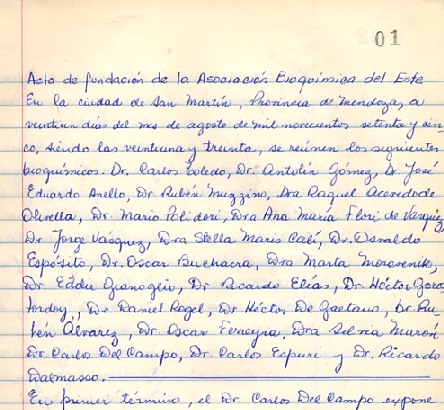 01
Acta de fundación de la Asociación Bioquímica del Este
En la ciudad de San Martín, Provincia de Mendoza, a
veintiun días del mes de agosto de mil novecientos setenta y cin-
co, siendo las veintiuna y treinta, se reúnen los siguientes
bioquímicos: Dr. Carlos Toledo, Dr. Antolín Gómez, Dr. José
Eduardo Anello, Dr. Rubén Muzzino, Dra Raquel Acevedo de
Olivella, Dr. Mario Polidori, Dra Ana María Flori de Vasquez,
Dr Jorge Vásquez, Dra Stella Maris Calí, Dr. Osvaldo
Espósito, Dr. Oscar Buchacra, Dra Marta
Dr. Eddie Dr Ricardo Elías, Dr. Héctor
Dr Daniel Rogel, Dr Héctor De Gaetano, Dr Ru-
bén Álvarez, Dr Oscar Ferreyra, Dra Silvia Marón
Dr. Carlos Del Campo, Dr. Carlos y Dr. Ricardo
Dalmasso.
En primer término, el Dr Carlos Del Campo expone